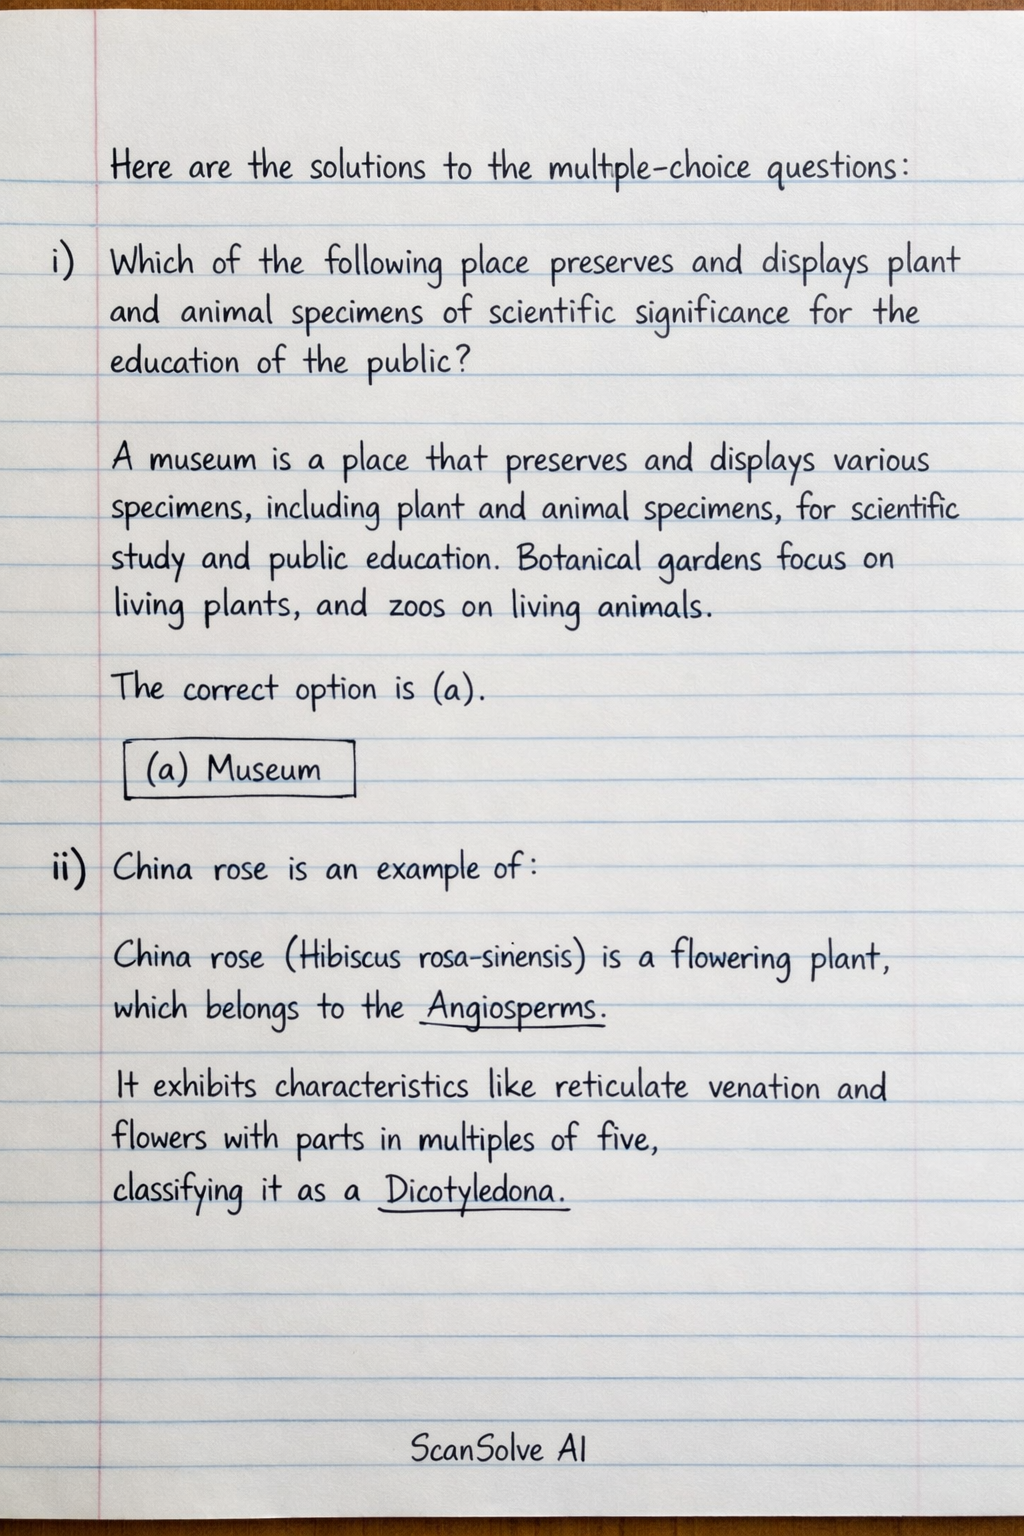 Here are the solutions to the multiple-choice questions:
i) Which of the following place preserves and displays plant
and animal specimens of scientific significance for the
education of the public?
A museum is a place that preserves and displays various
specimens, including plant and animal specimens, for scientific
study and public education. Botanical gardens focus on
living plants, and zoos on living animals.
The correct option is (a).
(a) Museum
ii) China rose is an example of:
China rose (Hibiscus rosa-sinensis) is a flowering plant,
which belongs to the Angiosperms.
It exhibits characteristics like reticulate venation and
flowers with parts in multiples of five,
classifying it as a Dicotyledona.
ScanSolve AI